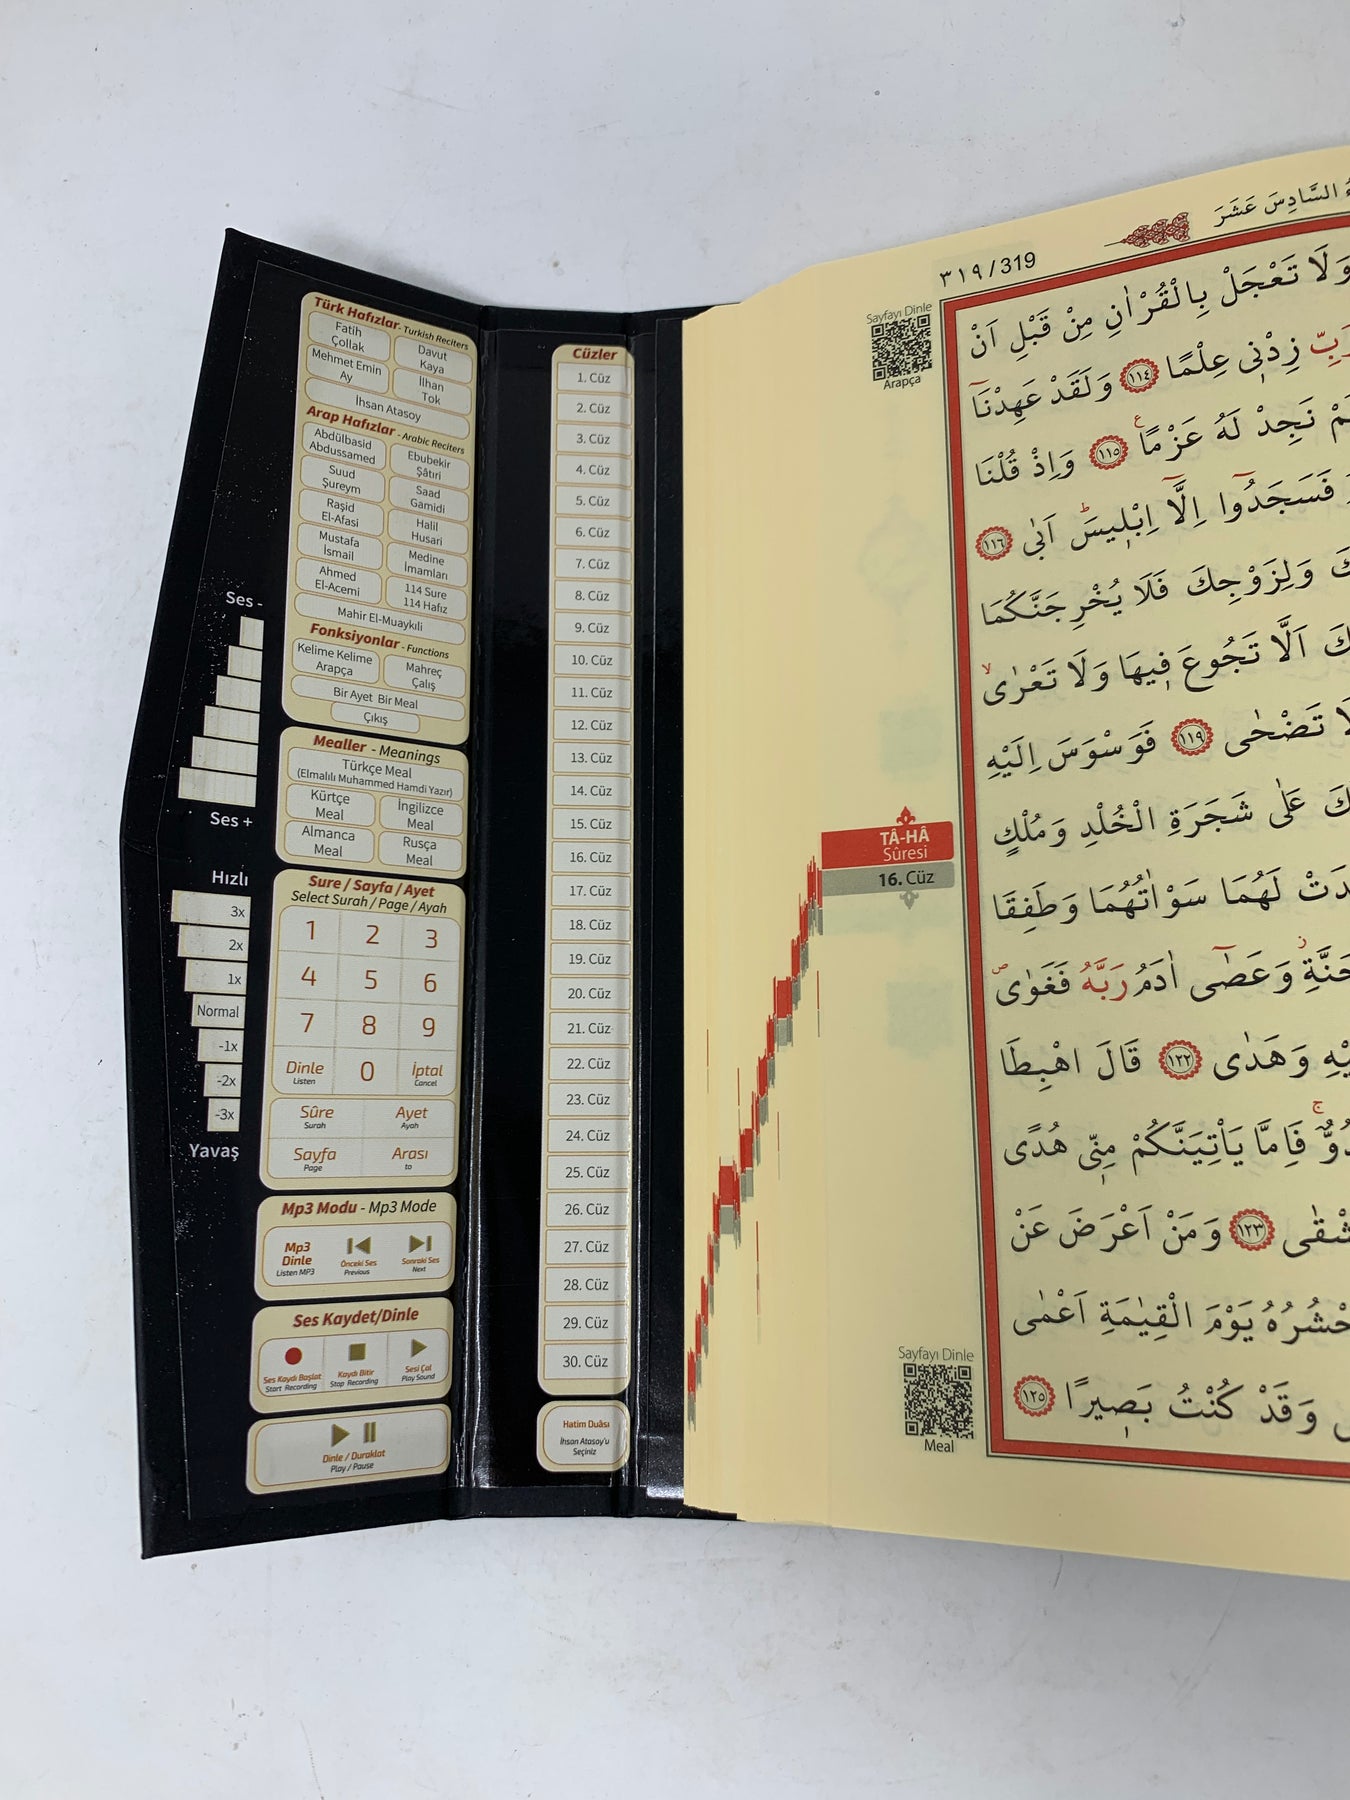 Türk Hafızlar - Turkish Reciters
Fatih
Çollak
Davut
Kaya
Mehmet Emin
Ay
İlhan
Tok
İhsan Atasoy
Arap Hafızlar - Arabic Reciters
Abdülbasid
Abdussamed
Ebubekir
Şâtıri
Suud
Şureym
Saad
Gamidi
Raşid
El-Afasi
Halil
Husari
Mustafa
İsmail
Medine
İmamları
Ahmed
El-Acemi
114 Sure
114 Hafız
Mahir El-Muaykıli
Fonksiyonlar - Functions
Kelime Kelime
Arapça
Mahreç
Çalış
Bir Ayet Bir Meal
Çıkış
Mealler - Meanings
Türkçe Meal
(Elmalılı Muhammed Hamdi Yazır)
Kürtçe
Meal
İngilizce
Meal
Almanca
Meal
Rusça
Meal
Sure / Sayfa / Ayet
Select Surah / Page / Ayah
1 2 3
4 5 6
7 8 9
Dinle 0 İptal
Listen Cancel
Sûre Ayet
Surah Ayah
Sayfa Arası
Page to
Mp3 Modu - Mp3 Mode
Mp3
Dinle
Listen MP3
Önceki Ses
Previous
Sonraki Ses
Next
Ses Kaydet/Dinle
Ses Kaydı Başlat
Start Recording
Kaydı Bitir
Stop Recording
Sesi Çal
Play Sound
Dinle / Duraklat
Play / Pause
Ses -
Ses +
Hızlı
3x
2x
1x
Normal
-1x
-2x
-3x
Yavaş
Cüzler
1. Cüz
2. Cüz
3. Cüz
4. Cüz
5. Cüz
6. Cüz
7. Cüz
8. Cüz
9. Cüz
10. Cüz
11. Cüz
12. Cüz
13. Cüz
14. Cüz
15. Cüz
16. Cüz
17. Cüz
18. Cüz
19. Cüz
20. Cüz
21. Cüz
22. Cüz
23. Cüz
24. Cüz
25. Cüz
26. Cüz
27. Cüz
28. Cüz
29. Cüz
30. Cüz
Hatim Duâsı
İhsan Atasoy'u
Seçiniz
السَّادِسَ عَشَرَ
٣١٩ / 319
Sayfayı Dinle
Arapça
TÂ-HÂ
Sûresi
16. Cüz
Sayfayı Dinle
Meal
وَلَا تَعْجَلْ بِالْقُرْاٰنِ مِنْ قَبْلِ اَنْ
رَبِّ زِدْنٖي عِلْمًا ١١٤ وَلَقَدْ عَهِدْنَٓا
نَجِدْ لَهُ عَزْمًا ١١٥ وَاِذْ قُلْنَا
فَسَجَدُٓوا اِلَّٓا اِبْلٖيسَ اَبٰى ١١٦
وَلِزَوْجِكَ فَلَا يُخْرِجَنَّكُمَا
اَلَّا تَجُوعَ فٖيهَا وَلَا تَعْرٰى
تَضْحٰى ١١٩ فَوَسْوَسَ اِلَيْهِ
عَلٰى شَجَرَةِ الْخُلْدِ وَمُلْكٍ
لَهُمَا سَوْاٰتُهُمَا وَطَفِقَا
وَعَصٰٓى اٰدَمُ رَبَّهُ فَغَوٰى
وَهَدٰى ١٢٢ قَالَ اهْبِطَا
فَاِمَّا يَأْتِيَنَّكُمْ مِنّٖي هُدًى
١٢٣ وَمَنْ اَعْرَضَ عَنْ
يَوْمَ الْقِيٰمَةِ اَعْمٰى
وَقَدْ كُنْتُ بَصٖيرًا ١٢٥